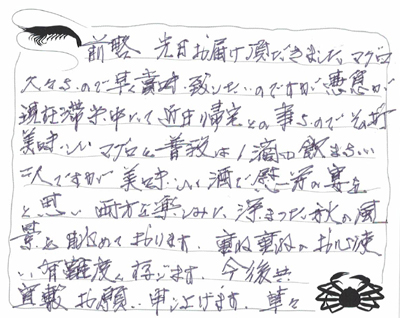 前略 先日お届け頂だきました。マグロ
久々なので早く賞味致したいのですが愚息が
現在滞米中にて近日帰宅との事なのでその節
美味しいマグロと普段は1滴も飲まない
二人ですが美味しい酒で慰労の宴を
と思い両方を楽しみに、深まった秋の風
景を眺めております。重ね重ねのお心使
い有難度く存じます。今後共
宜敷お願い申し上げます。草々